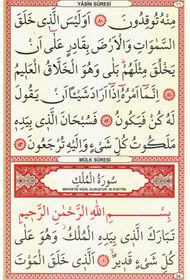 YÂSÎN SÛRESİ
مِنْهُ تُوقِدُونَ ﴿٨٠﴾ اَوَلَيْسَ الَّذٖى خَلَقَ
السَّمٰوَاتِ وَالْاَرْضَ بِقَادِرٍ عَلٰٓى اَنْ
يَخْلُقَ مِثْلَهُمْ بَلٰى وَهُوَ الْخَلَّاقُ الْعَلٖيمُ
﴿٨١﴾ اِنَّمَٓا اَمْرُهُٓ اِذَٓا اَرَادَ شَيْـًٔا اَنْ يَقُولَ
لَهُ كُنْ فَيَكُونُ ﴿٨٢﴾ فَسُبْحَانَ الَّذٖى بِيَدِهٖ
مَلَكُوتُ كُلِّ شَىْءٍ وَاِلَيْهِ تُرْجَعُونَ ﴿٨٣﴾
MÜLK SÛRESİ
سُورَةُ الْمُلْكِ
بِسْمِ اللّٰهِ الرَّحْمٰنِ الرَّحٖيمِ
تَبَارَكَ الَّذٖى بِيَدِهِ الْمُلْكُ وَهُوَ عَلٰى
كُلِّ شَىْءٍ قَدٖيرٌ ﴿١﴾ اَلَّذٖى خَلَقَ الْمَوْتَ